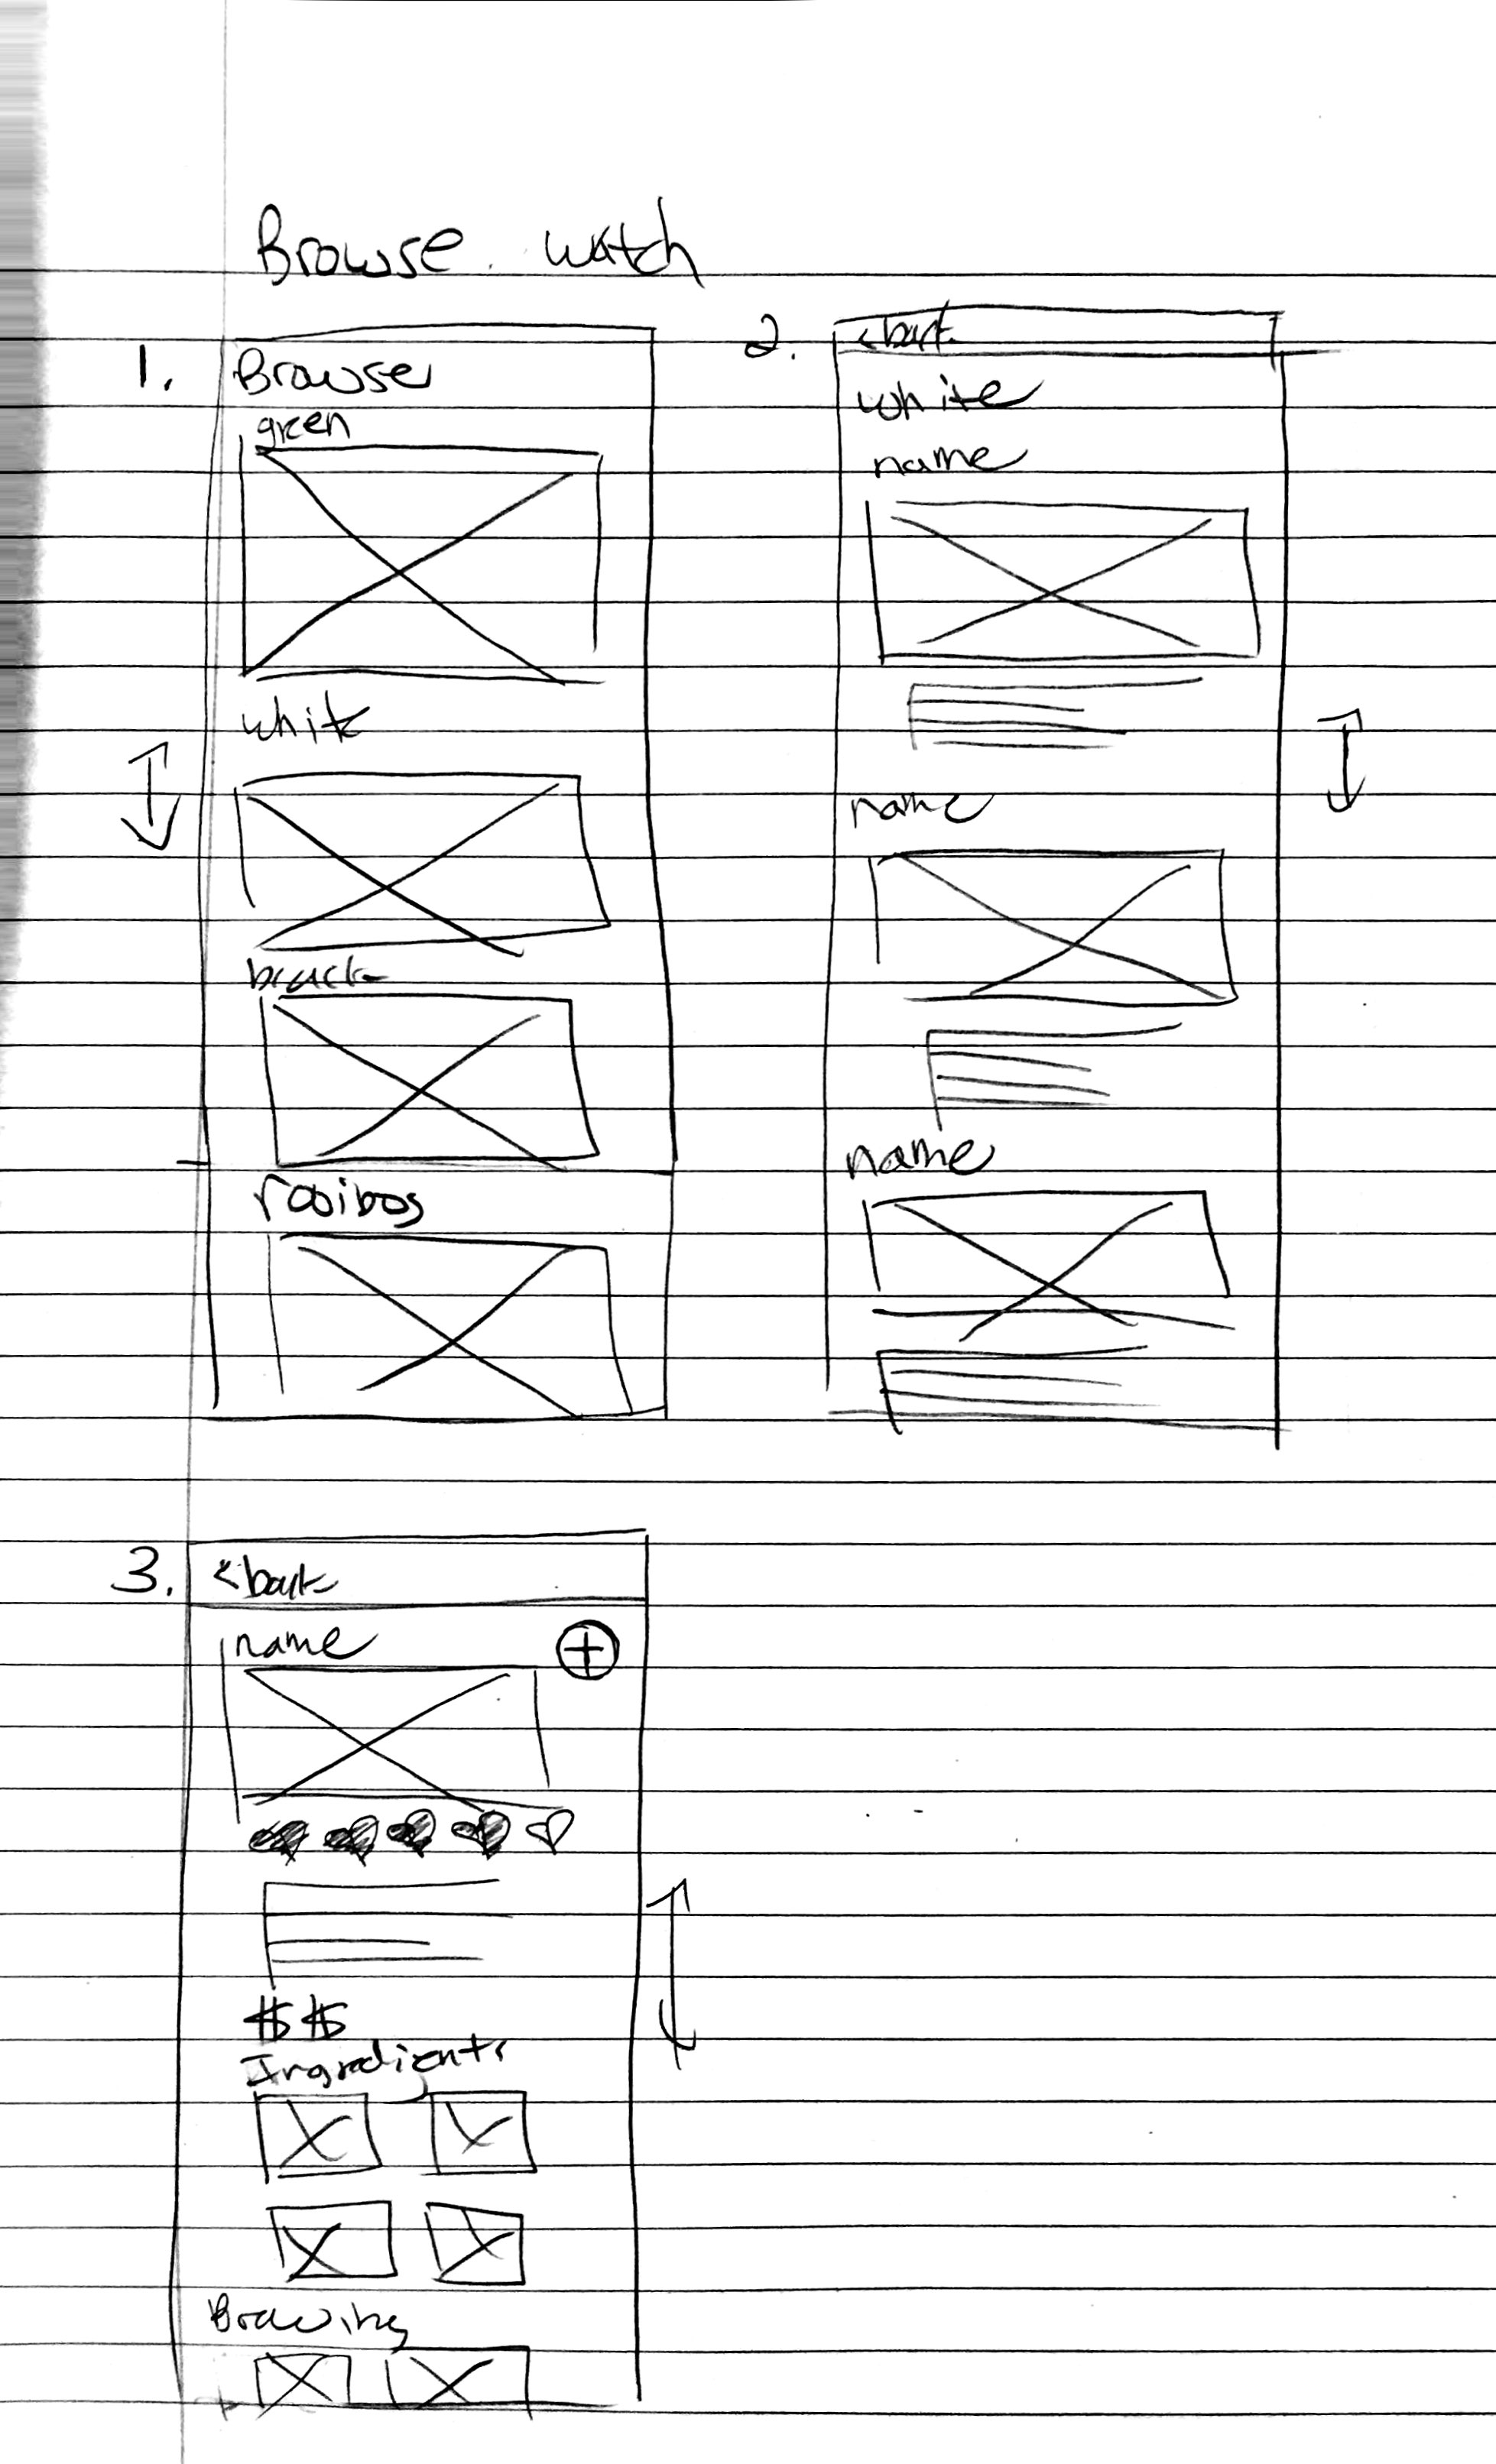 Browse watch
1.
Browse
green
white
black
rooibos
2.
<back
white
name
name
name
3.
<back
name
$$
Ingredients
Brewing